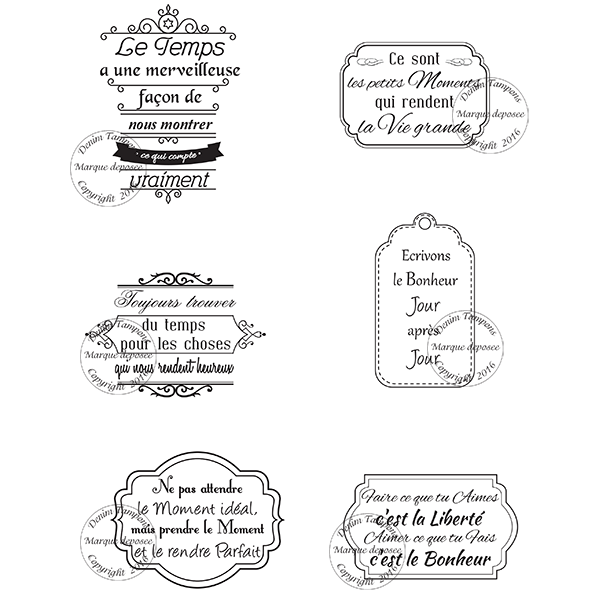 Le Temps
a une merveilleuse
façon de
nous montrer
ce qui compte
vraiment
Denim Tampons
Marque deposee
Copyright 2016
Ce sont
les petits Moments
qui rendent
la Vie grande
Denim Tampons
Marque deposee
Copyright 2016
Toujours trouver
du temps
pour les choses
qui nous rendent heureux
Denim Tampons
Marque deposee
Copyright 2016
Ecrivons
le Bonheur
Jour
après
Jour
Denim Tampons
Marque deposee
Copyright 2016
Ne pas attendre
le Moment idéal,
mais prendre le Moment
et le rendre Parfait
Denim Tampons
Marque deposee
Copyright 2016
Faire ce que tu Aimes
c'est la Liberté
Aimer ce que tu Fais
c'est le Bonheur
Denim Tampons
Marque deposee
Copyright 2016